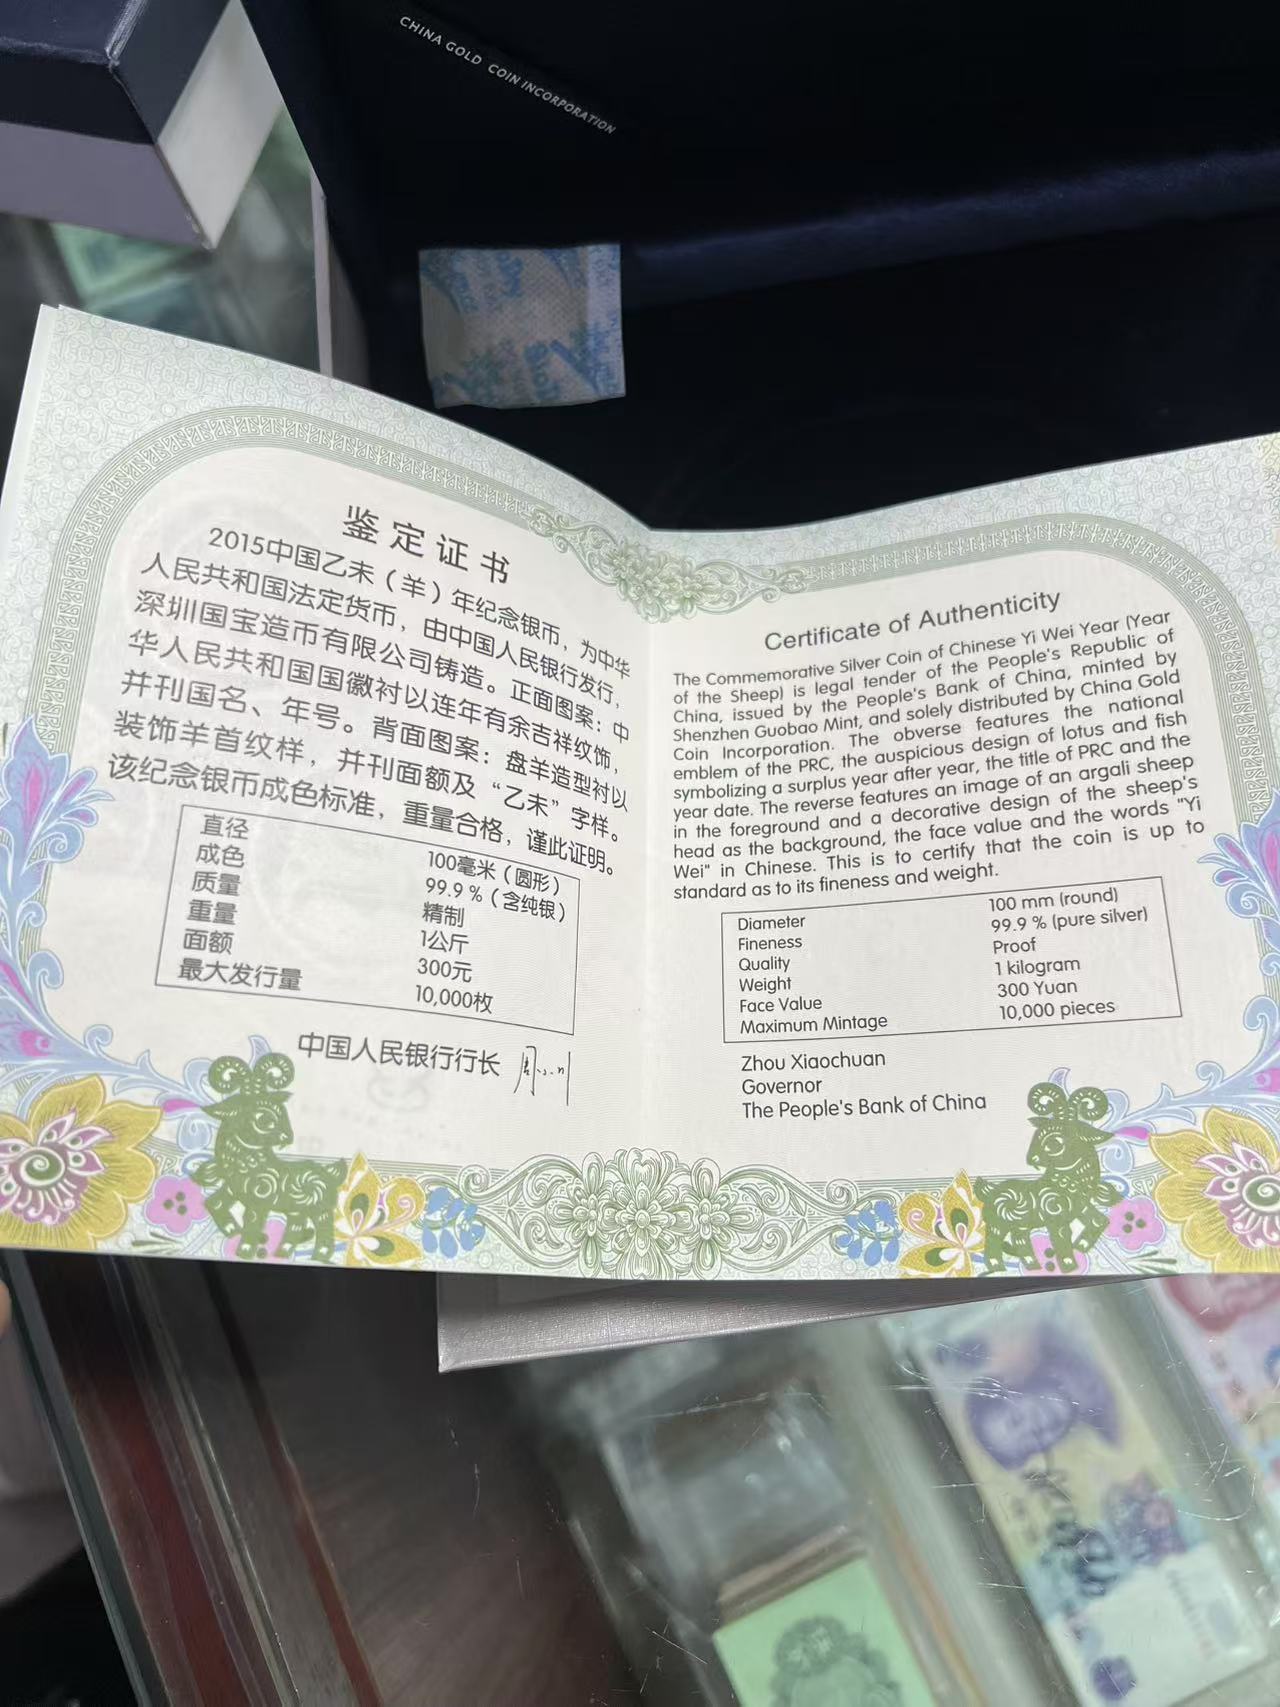 CHINA GOLD COIN INCORPORATION
鉴定证书
2015中国乙未（羊）年纪念银币，为中华
人民共和国法定货币，由中国人民银行发行，
深圳国宝造币有限公司铸造。正面图案：中
华人民共和国国徽衬以连年有余吉祥纹饰，
并刊国名、年号。背面图案：盘羊造型衬以
装饰羊首纹样，并刊面额及“乙未”字样。
该纪念银币成色标准，重量合格，谨此证明。
直径 100毫米（圆形）
成色 99.9％（含纯银）
质量 精制
重量 1公斤
面额 300元
最大发行量 10,000枚
中国人民银行行长
Certificate of Authenticity
The Commemorative Silver Coin of Chinese Yi Wei Year (Year
of the Sheep) is legal tender of the People's Republic of
China, issued by the People's Bank of China, minted by
Shenzhen Guobao Mint, and solely distributed by China Gold
Coin Incorporation. The obverse features the national
emblem of the PRC, the auspicious design of lotus and fish
symbolizing a surplus year after year, the title of PRC and the
year date. The reverse features an image of an argali sheep
in the foreground and a decorative design of the sheep's
head as the background, the face value and the words "Yi
Wei" in Chinese. This is to certify that the coin is up to
standard as to its fineness and weight.
Diameter 100 mm (round)
Fineness 99.9 % (pure silver)
Quality Proof
Weight 1 kilogram
Face Value 300 Yuan
Maximum Mintage 10,000 pieces
Zhou Xiaochuan
Governor
The People's Bank of China